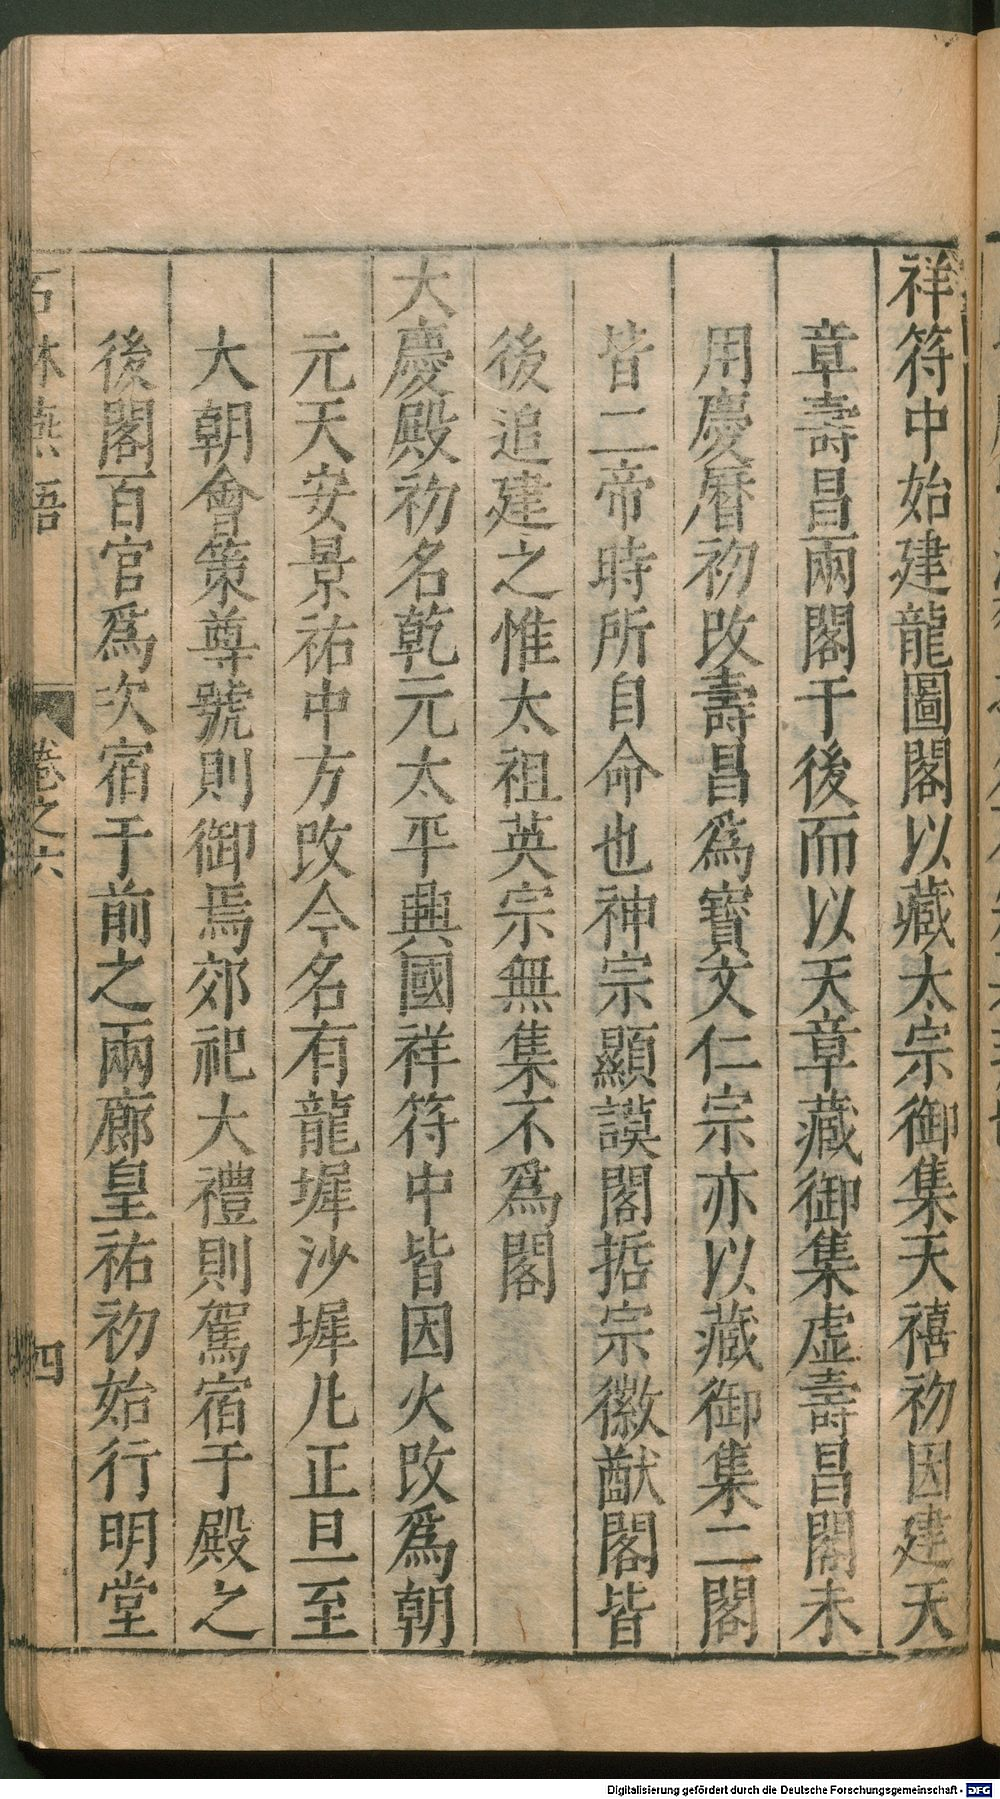 祥符中始建龍圖閣以藏太宗御集天禧初因建天
章壽昌兩閣于後而以天章藏御集虛壽昌閣未
用慶曆初改壽昌爲寶文仁宗亦以藏御集二閣
皆二帝時所自命也神宗顯謨閣哲宗徽猷閣皆
後追建之惟太祖英宗無集不爲閣
大慶殿初名乾元太平興國祥符中皆因火改爲朝
元天安景祐中方改今名有龍墀沙墀凡正旦至
大朝會策尊號則御焉郊祀大禮則駕宿于殿之
後閣百官爲次宿于前之兩廊皇祐初始行明堂
石林燕語 卷之六 四
Digitalisierung gefördert durch die Deutsche Forschungsgemeinschaft - DFG